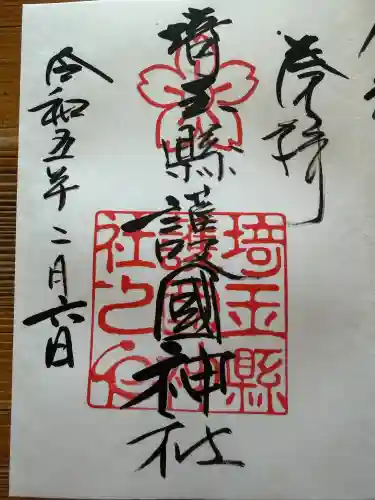 奉拝
埼玉縣護國神社
埼玉縣護國神社之印
令和五年二月六日